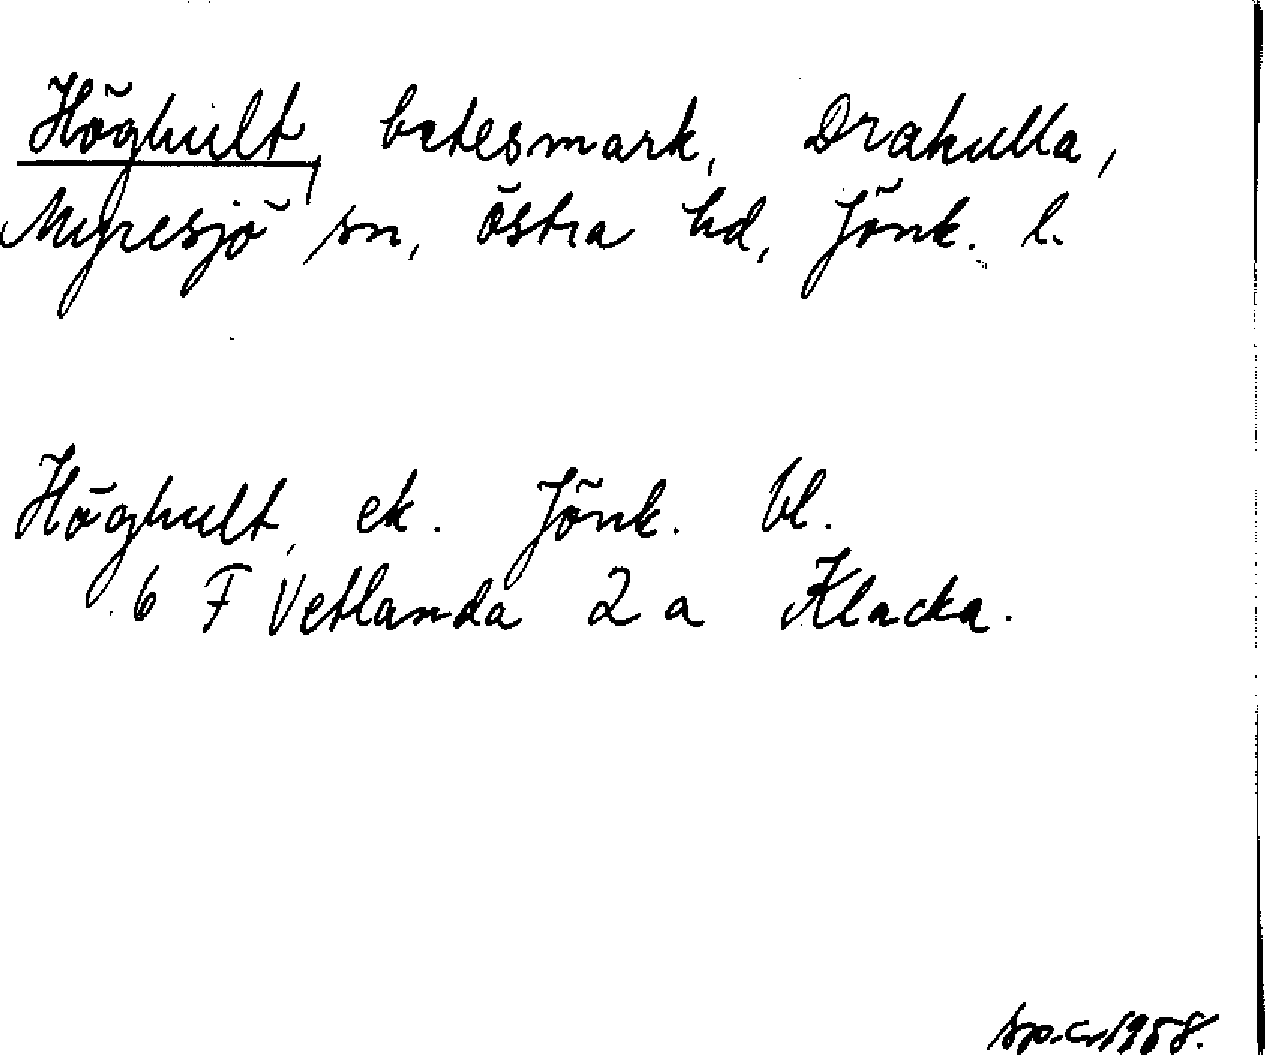 Höghult, betesmark, Drakulla,
Myresjö sn, Östra hd, Jönk. l.
Höghult, ek. Jönk. bl.
6 F Vetlanda 2 a Klacka.
1958.